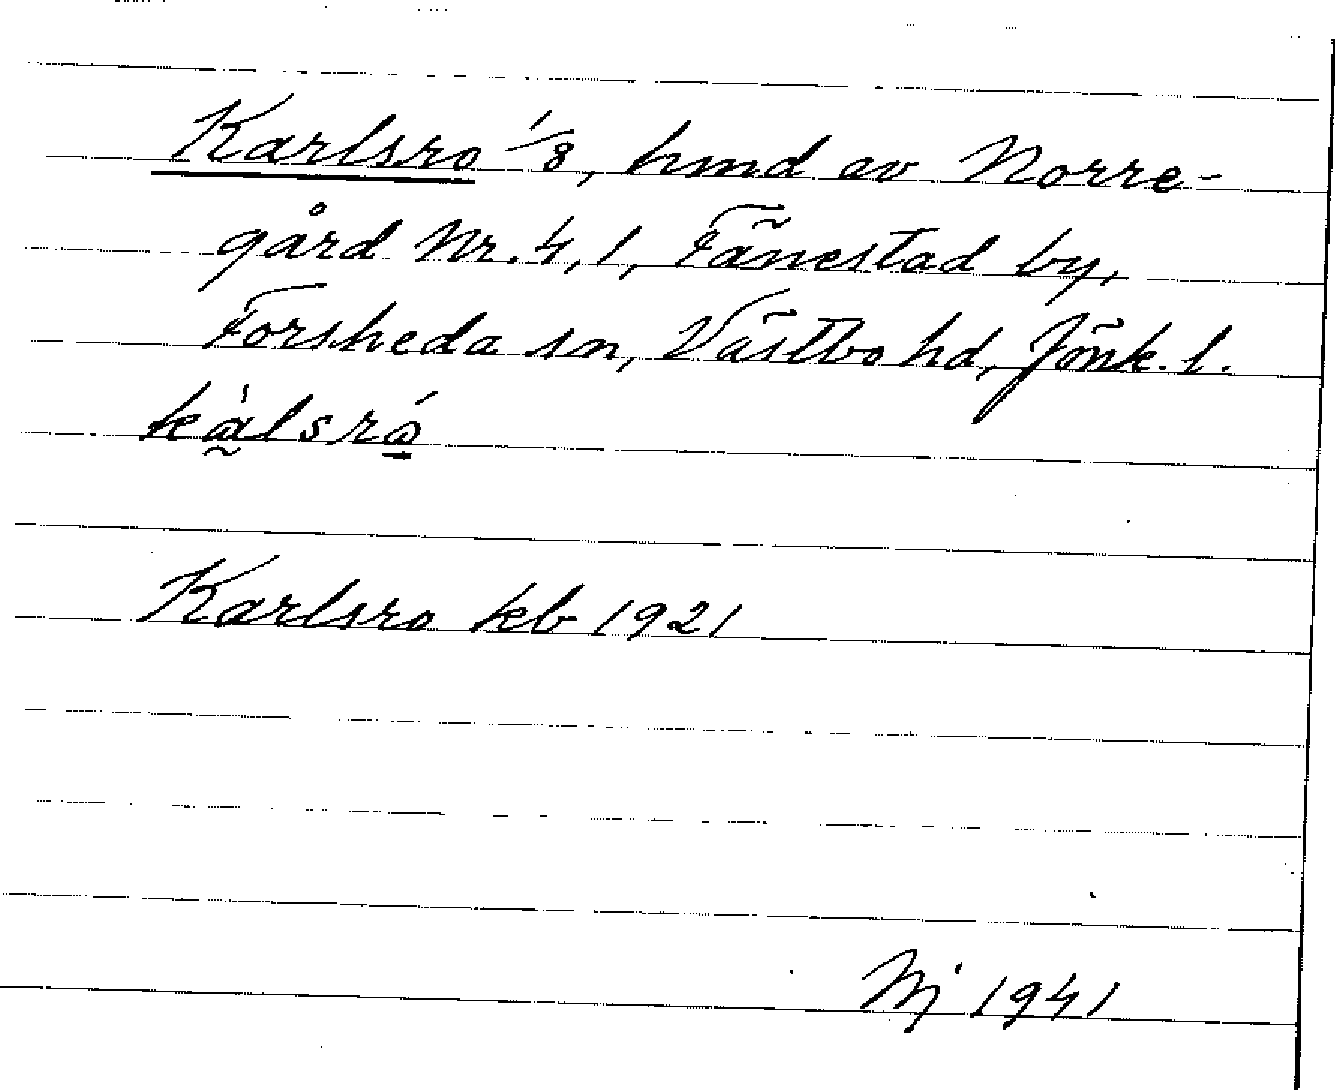 Karlsro 1/8, hmd av Norre-
gård Nr. 4,1, Fänestad by,
Forsheda sn, Västbo hd, Jönk. l.
kàlsró
Karlsro kb 1921
1941